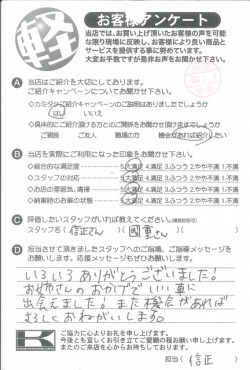 軽
お客様アンケート
当店では、お買い上げ頂いたお客様の声を可能
な限り現場に反映し、お客様により良い商品と
サービスを提供する事に努めています。
大変お手数ですが是非お声をお聞かせ下さい。
A 当店はご紹介を大切にしております。
ご紹介キャンペーンについてお聞かせ下さい。
はい いいえ
ご親族 ご友人 職場の方 機会があれば紹介したい
B 当店を実際にご利用になった印象をお聞かせ下さい。
◇総合的な満足度 5.大満足 4.満足 3.ふつう 2.やや不満 1.不満
◇スタッフの対応 5.大満足 4.満足 3.ふつう 2.やや不満 1.不満
◇お店の雰囲気、清掃 5.大満足 4.満足 3.ふつう 2.やや不満 1.不満
◇納車時のお車の状態 5.大満足 4.満足 3.ふつう 2.やや不満 1.不満
C 評価したいスタッフがいれば教えてください。(複数回答可)
スタッフ名( 信正さん )( 國重さん )
D 担当させて頂きましたスタッフへのご指摘、ご指導メッセージを
お願いします。応援メッセージもぜひお願いします。
いろいろありがとうございました!
お姉さんのおかげでいい車に
出会えました!また機会があれば
よろしくおねがいします。
K
ご協力に心よりお礼を申し上げます。
今後とも宜しくお引き立てご愛顧の程お願い申し上げます。
またのご来店を心からお待ちしております。
担当( 信正 )